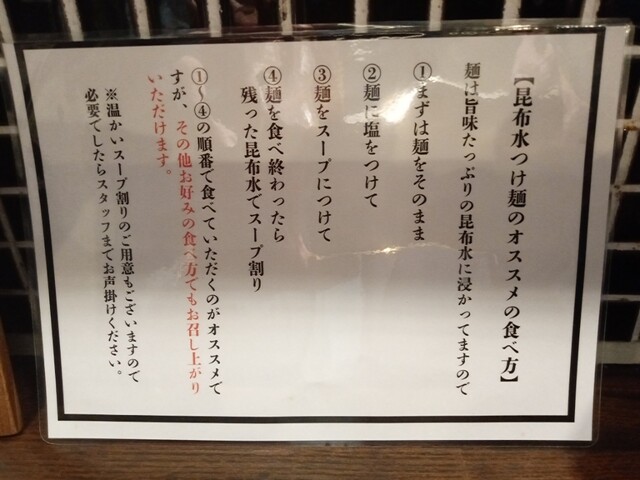 【昆布水つけ麺のオススメの食べ方】
麺は旨味たっぷりの昆布水に浸かってますので
①まずは麺をそのまま
②麺に塩をつけて
③麺をスープにつけて
④麺を食べ終わったら
残った昆布水でスープ割り
①～④の順番で食べていただくのがオススメで
すが、その他お好みの食べ方でもお召し上がり
いただけます。
※温かいスープ割りのご用意もございますので
必要でしたらスタッフまでお声掛けください。